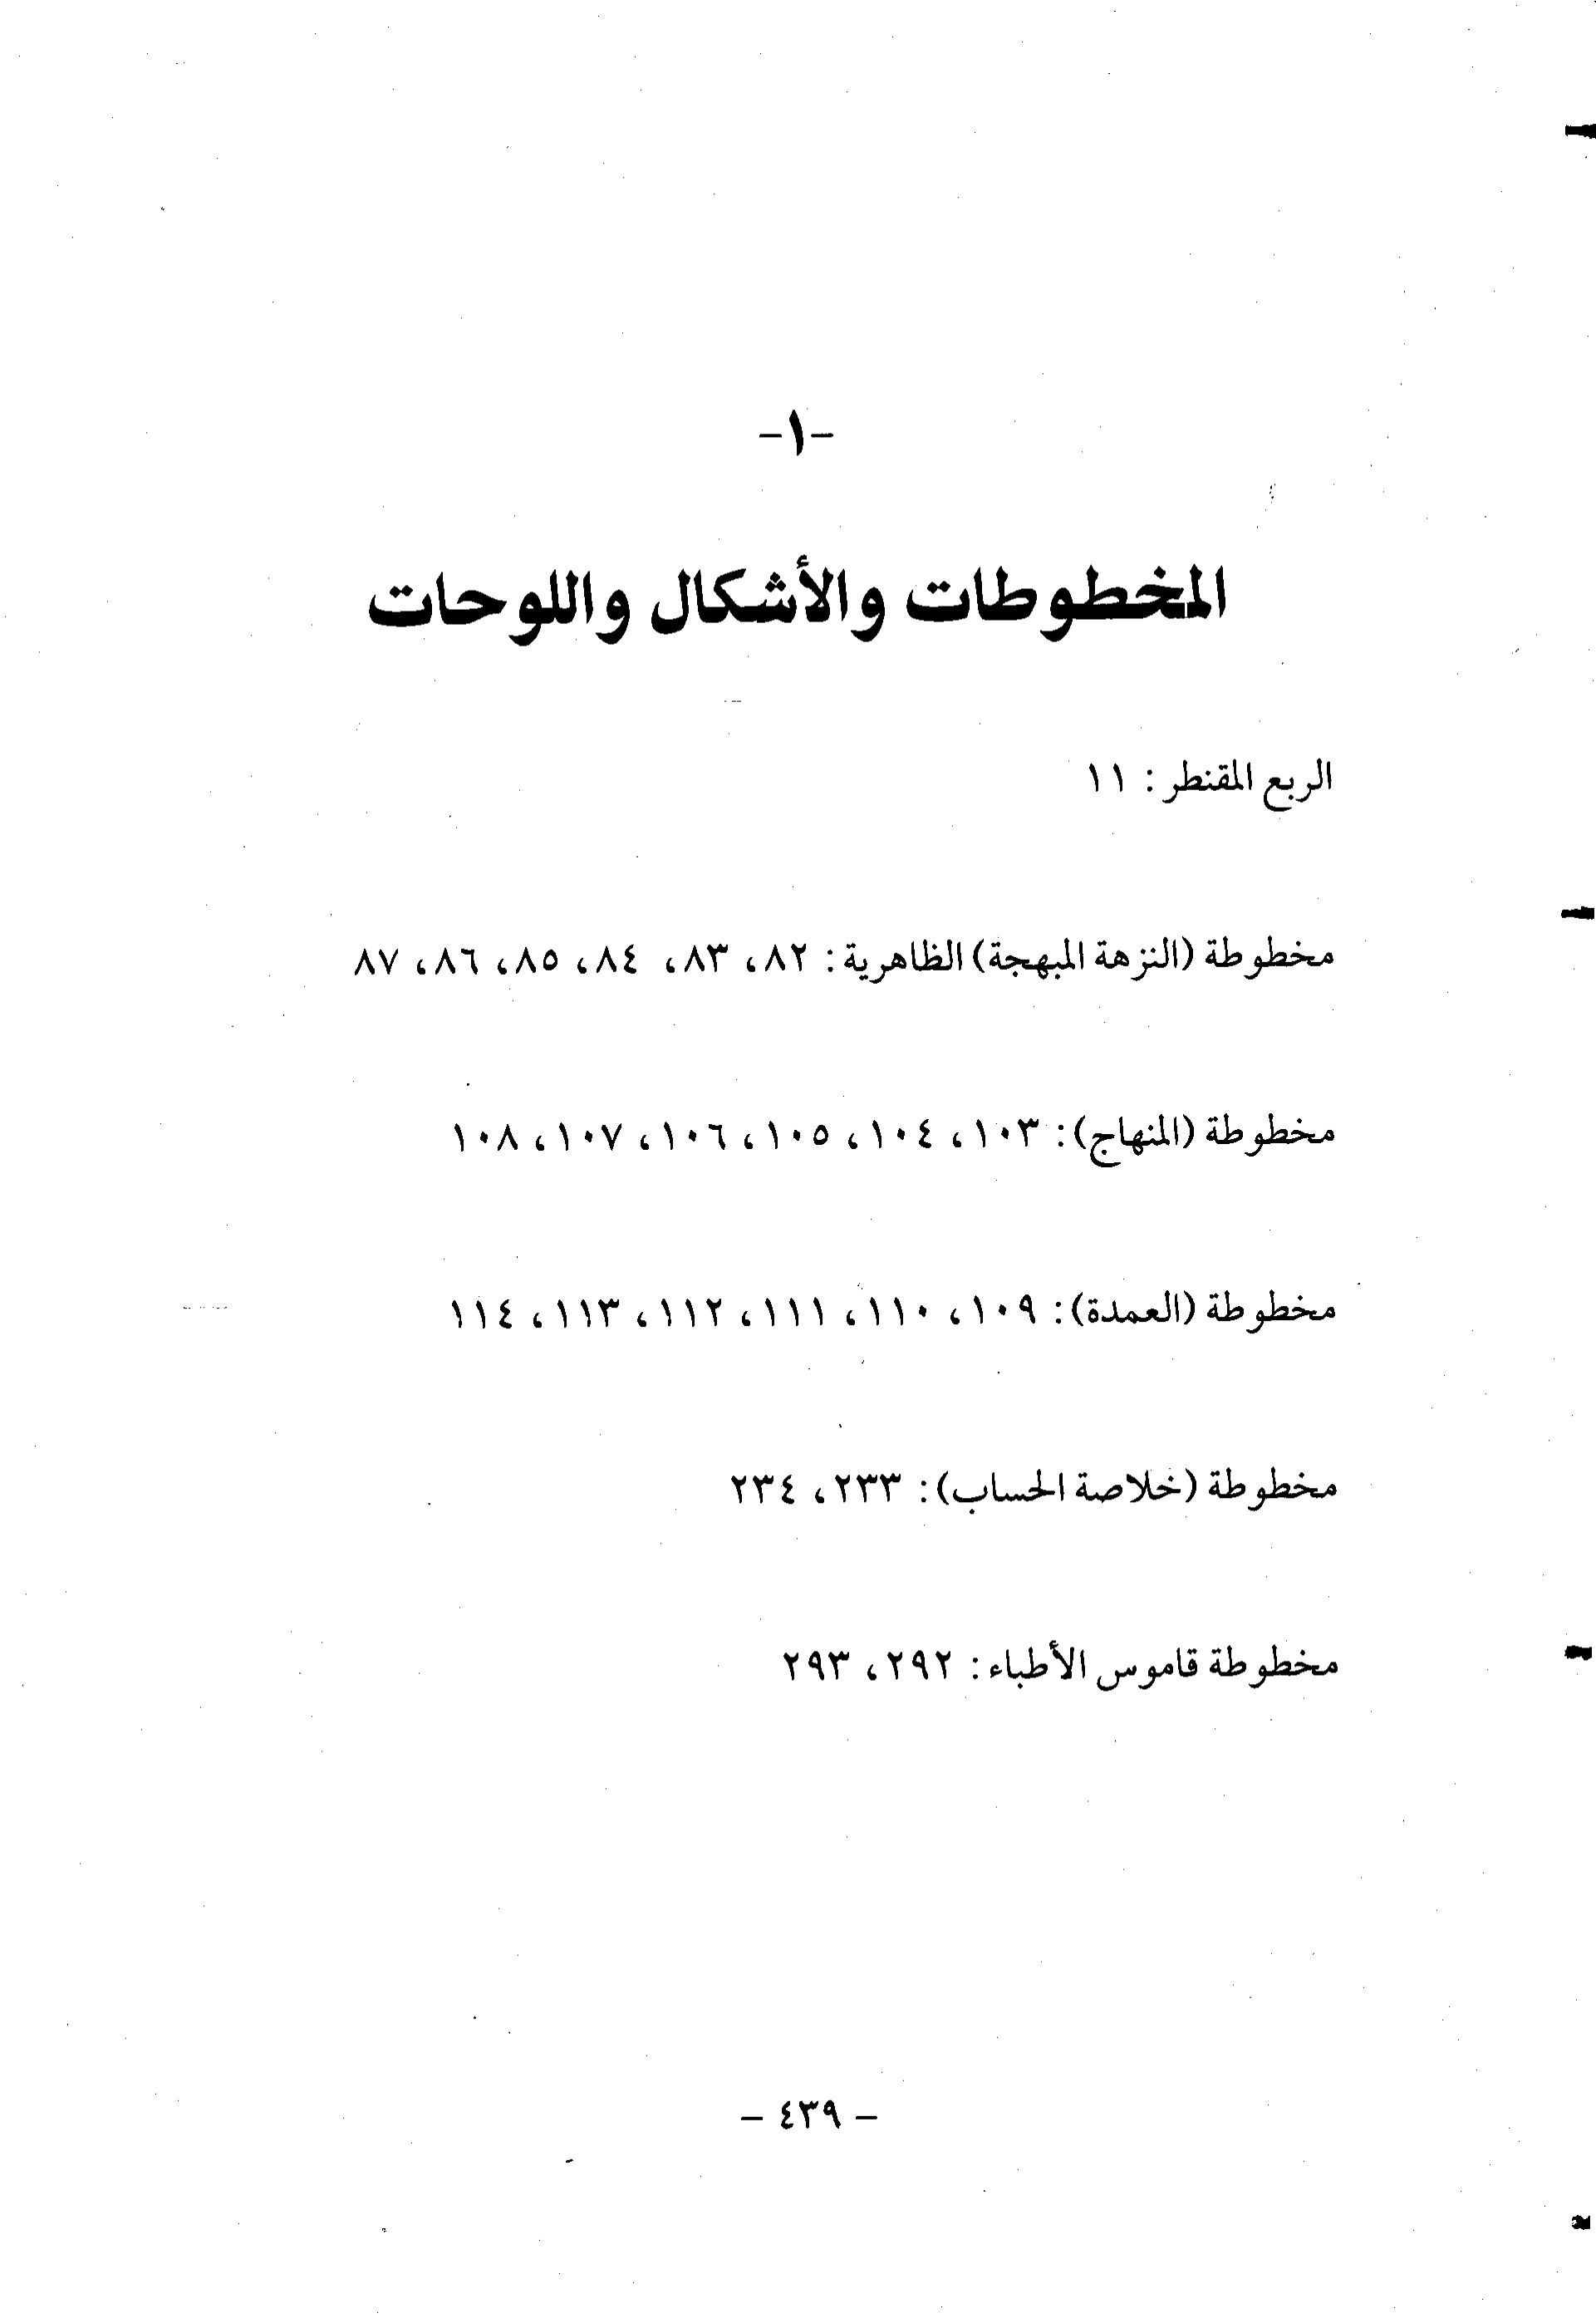 -١-
المخطوطات والأشكال واللوحات
الربع المقنطر: ١١
مخطوطة (النزهة المبهجة) الظاهرية: ٨٢، ٨٣، ٨٤، ٨٥، ٨٦، ٨٧
مخطوطة (المنهاج): ١٠٣، ١٠٤، ١٠٥، ١٠٦، ١٠٧، ١٠٨
مخطوطة (العمدة): ١٠٩، ١١٠، ١١١، ١١٢، ١١٣، ١١٤
مخطوطة (خلاصة الحساب): ٢٣٣، ٢٣٤
مخطوطة قاموس الأطباء: ٢٩٢، ٢٩٣
- ٤٣٩ -